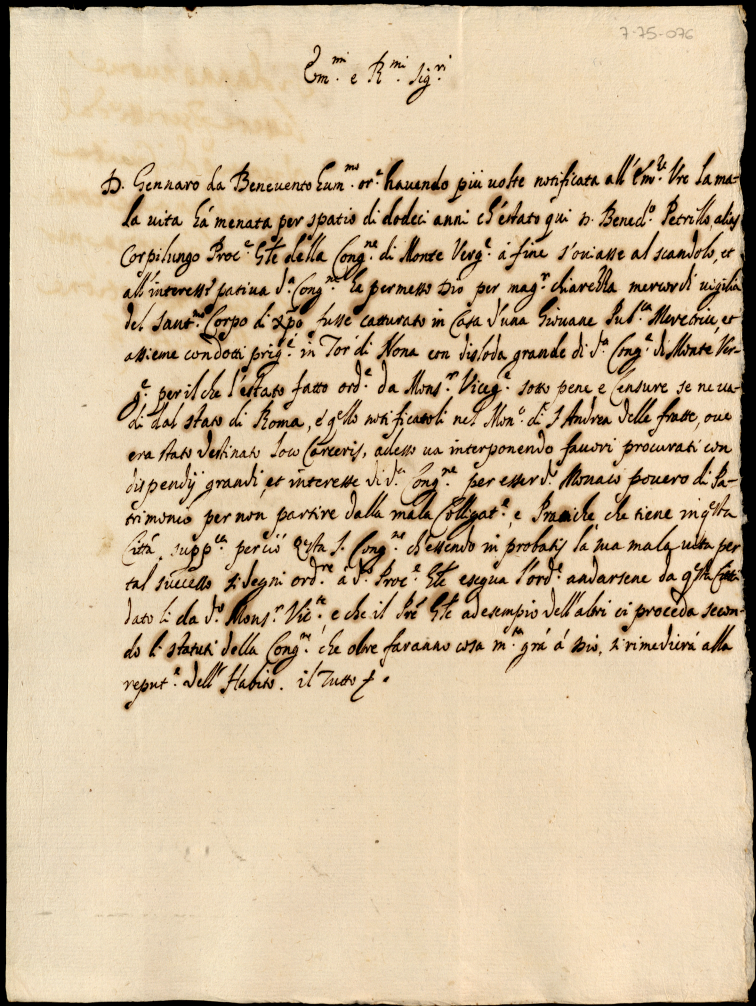 7-75-076
Em.mi e R.mi Sig.ri
D. Gennaro da Benevento hum.mo or.e havendo più volte notificata all'Em.ze Vre la ma-
la vita hà menata per spatio di dodeci anni ch'è stato qui D. Bened.o Petrillo, alias
Corpilungo Proc.e Gñle della Cong.ne di Monte Verg.e à fine s'oviasse al scandolo, et
all'interesse pativa d.a Cong.ne hà permesso Dio per mag.r chiarezza mercordì vigilia
del Sant.mo Corpo di Xp̃o fusse catturato in Casa d'una Giovane Pub.ca Meretrice, et
assieme condotti prig.i in Tor di Nona con disloda grande di d.a Cong.e di Monte Ver-
g.e per il che l'è stato fatto ord.e da Mons.r Viceg.e sotto pene e Censure se ne va-
di dal stato di Roma, e q̃llo notificatoli nel Mon.o di S Andrea delle fratte, ove
era stato destinato loco Carceris, adesso va interponendo favori procurati con
dispendij grandi, et interesse di d.a Cong.ne per esser d.o Monaco povero di Pa-
trimonio per non partire dalla mala Colligat.e, e Prattiche che tiene in q̃sta
Città, supp.ca perciò Q̃sta S. Cong.ne ch'essendo in probatis la sua mala vita per
tal successo si degni ord.re à d.o Proc.e Gñle esegua l'ord.e andarsene da q̃sta Città
dato li da d.o Mons.r Vic.te, e che il Pre Gñle ad esempio dell'altri ci proceda secon-
do li statuti della Cong.ne che oltre faranno cosa m.to grã à Dio, si rimedierà alla
reput.e dell'Habito. il Tutto